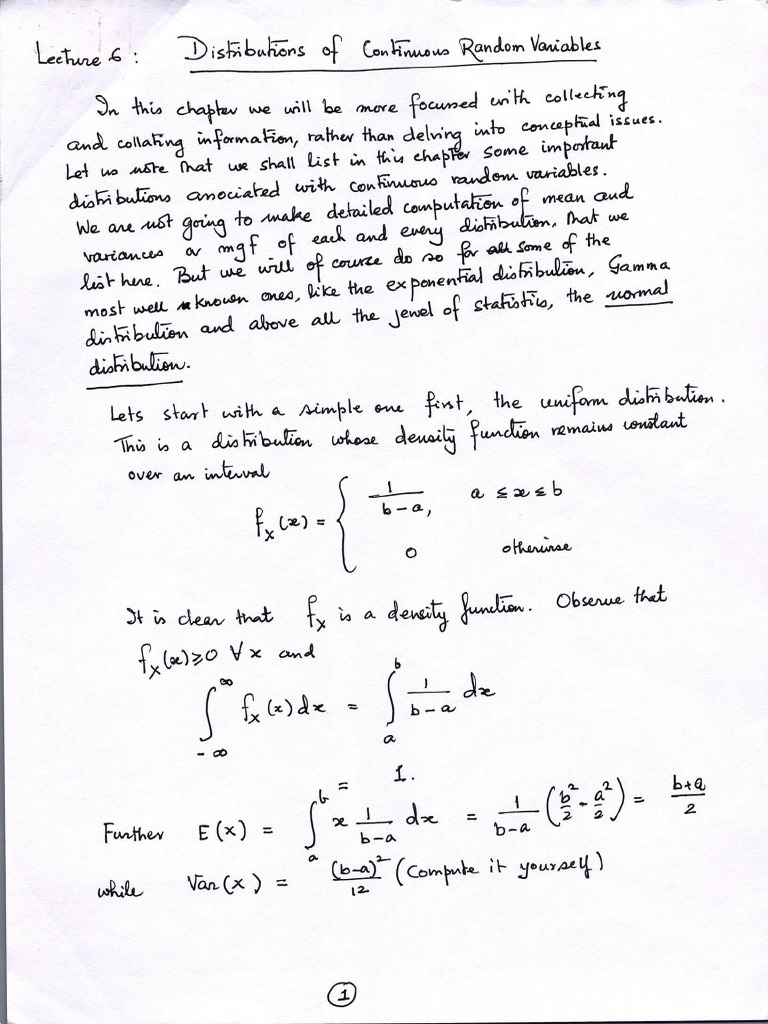 Lecture 6 : Distributions of Continuous Random Variables
In this chapter we will be more focussed with collecting
and collating information, rather than delving into conceptual issues.
Let us note that we shall list in this chapter some important
distributions associated with continuous random variables.
We are not going to make detailed computation of mean and
variances or mgf of each and every distribution, that we
list here. But we will of course do so for some of the
most well known ones, like the exponential distribution, Gamma
distribution and above all the jewel of statistics, the normal
distribution.
Lets start with a simple one first, the uniform distribution.
This is a distribution whose density function remains constant
over an interval
f_X(x) = { 1/(b-a), a ≤ x ≤ b
0 otherwise
It is clear that f_X is a density function. Observe that
f_X(x) ≥ 0 ∀ x and
∫_{-∞}^{∞} f_X(x) dx = ∫_a^b 1/(b-a) dx
= 1.
Further E(X) = ∫_a^b x 1/(b-a) dx = 1/(b-a) (b²/2 - a²/2) = (b+a)/2
while Var(X) = (b-a)²/12 (Compute it yourself)
1